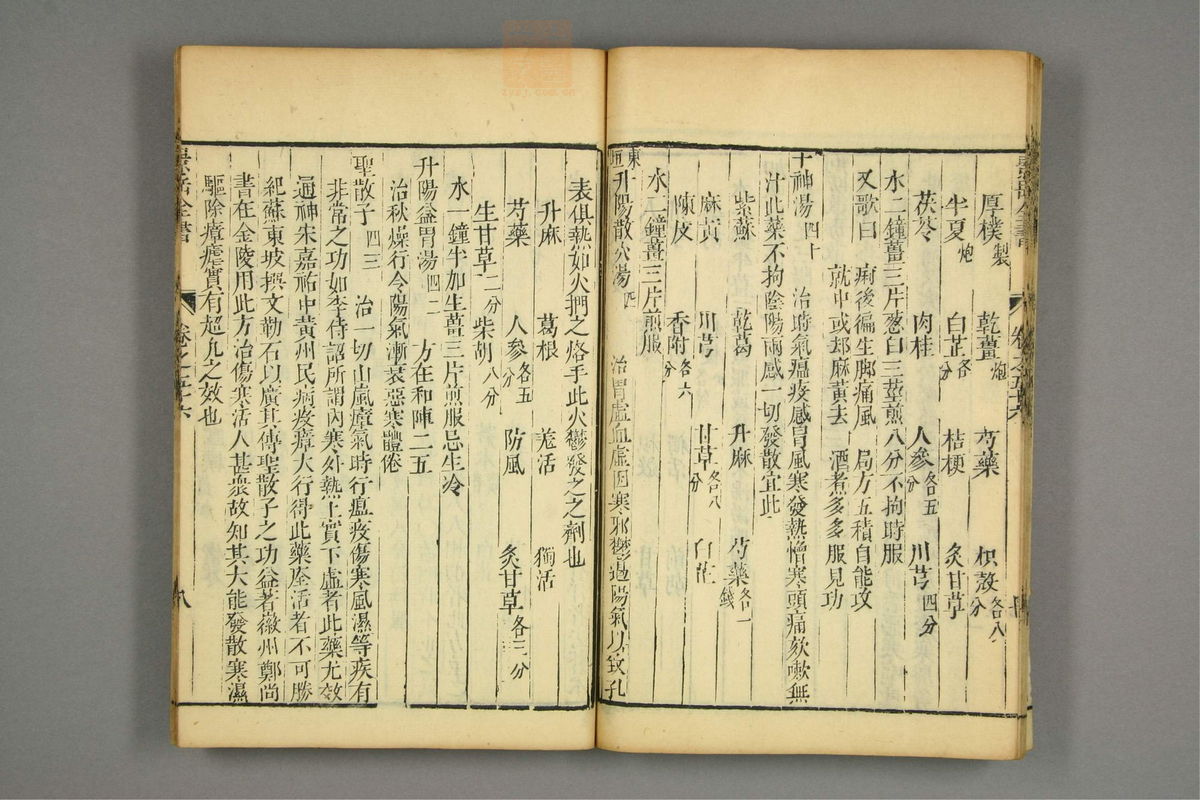 厚樸製 乾薑炮 芍藥 枳殼各八分
半夏炮 白芷各分 桔梗 炙甘草
茯苓 肉桂 人參各五分 川芎四分
水二鐘薑三片葱白三莖煎八分不拘時服
又歌曰 痢後徧生脚痛風 局方五積自能攻
就中或却麻黃去 酒煮多多服見功
十神湯四十 治時氣瘟疫感冒風寒發熱憎寒頭痛欬嗽無
汁此藥不拘陰陽兩感一切發散宜此
紫蘇 乾葛 升麻 芍藥各一錢
麻黃 川芎 甘草各八分 白芷
陳皮 香附各六分
水二鐘薑三片煎服
東垣升陽散火湯四一 治胃虛血虛因寒邪鬱遏陽氣以致孔
表俱熱如火捫之烙手此火鬱發之之劑也
升麻 葛根 羗活 獨活
芍藥 人參各五分 防風 炙甘草各三分
生甘草二分 柴胡八分
水一鐘半加生薑三片煎服忌生冷
升陽益胃湯四二 方在和陣二五
治秋燥行令陽氣漸衰惡寒體倦
聖散子四三 治一切山嵐瘴氣時行瘟疫傷寒風濕等疾有
非常之功如李待詔所謂內寒外熱上實下虛者此藥尤效
通神宋嘉祐中黃州民病疫瘴大行得此藥全活者不可勝
紀蘇東坡撰文勒石以廣其傳聖散子之功益著徽州鄭尚
書在金陵用此方治傷寒活人甚衆故知其大能發散寒濕
驅除瘴瘧實有超凡之效也
景岳全書 卷之五十六 八